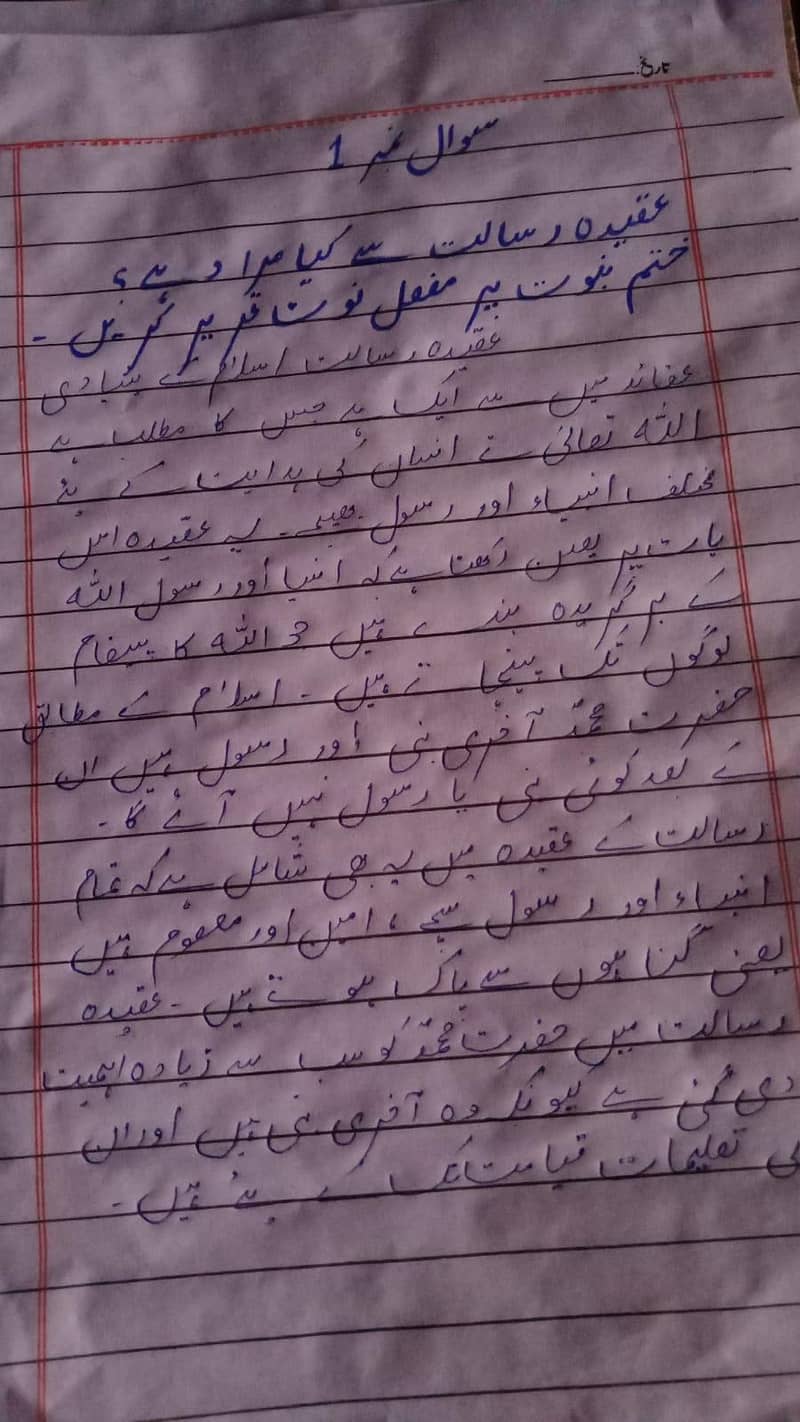 تاریخ:
سوال نمبر 1
عقیدہ رسالت سے کیا مراد ہے؟
ختم نبوت پر مفصل نوٹ تحریر کریں۔
عقیدہ رسالت اسلام کے بنیادی
عقائد میں سے ایک ہے جس کا مطلب ہے
اللہ تعالیٰ نے انسان کی ہدایت کے لئے
مختلف انبیاء اور رسول بھیجے۔ یہ عقیدہ اس
بات پر یقین رکھتا ہے کہ انبیا اور رسول اللہ
کے برگزیدہ بندے ہیں جو اللہ کا پیغام
لوگوں تک پہنچاتے ہیں۔ اسلام کے مطابق
حضرت محمدؐ آخری نبی اور رسول ہیں ان
کے بعد کوئی نبی یا رسول نہیں آئے گا۔
رسالت کے عقیدہ میں یہ بھی شامل ہے کہ تمام
انبیاء اور رسول سچے، امین اور معصوم ہیں
یعنی گناہوں سے پاک ہوتے ہیں۔ عقیدہ
رسالت میں حضرت محمدؐ کو سب سے زیادہ اہمیت
دی گئی ہے کیونکہ وہ آخری نبی ہیں اور ان
کی تعلیمات قیامت تک کے لئے ہیں۔